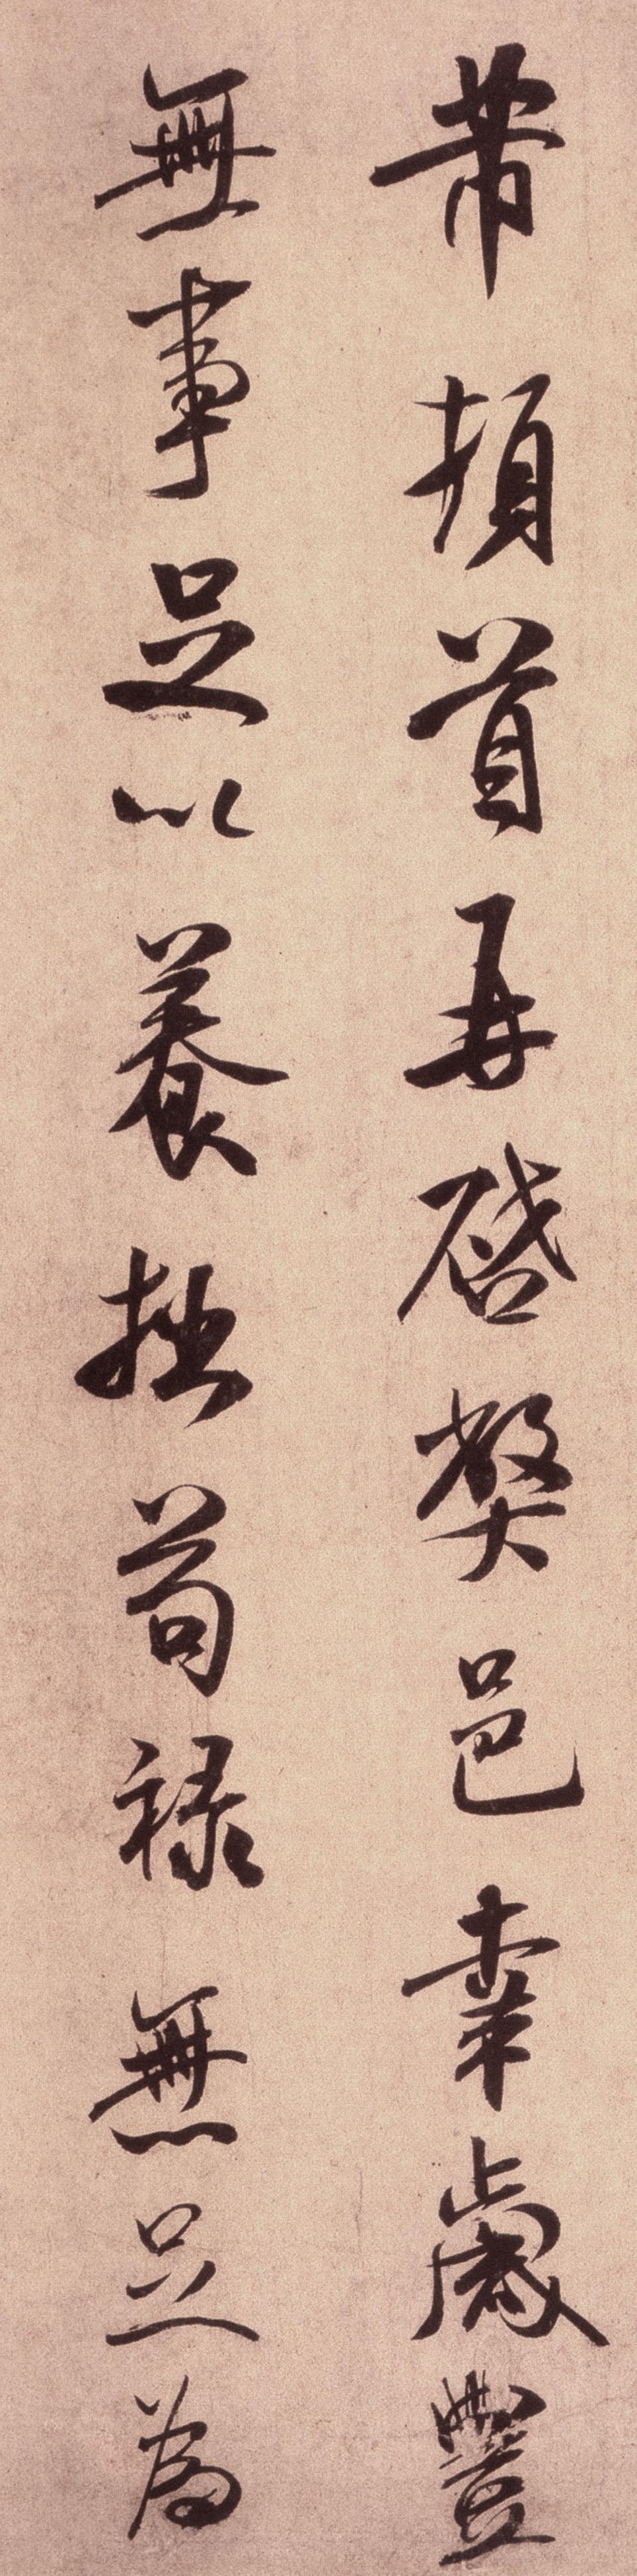 芾頓首再啓弊邑幸歲豐
無事足以養拙苟祿無足爲